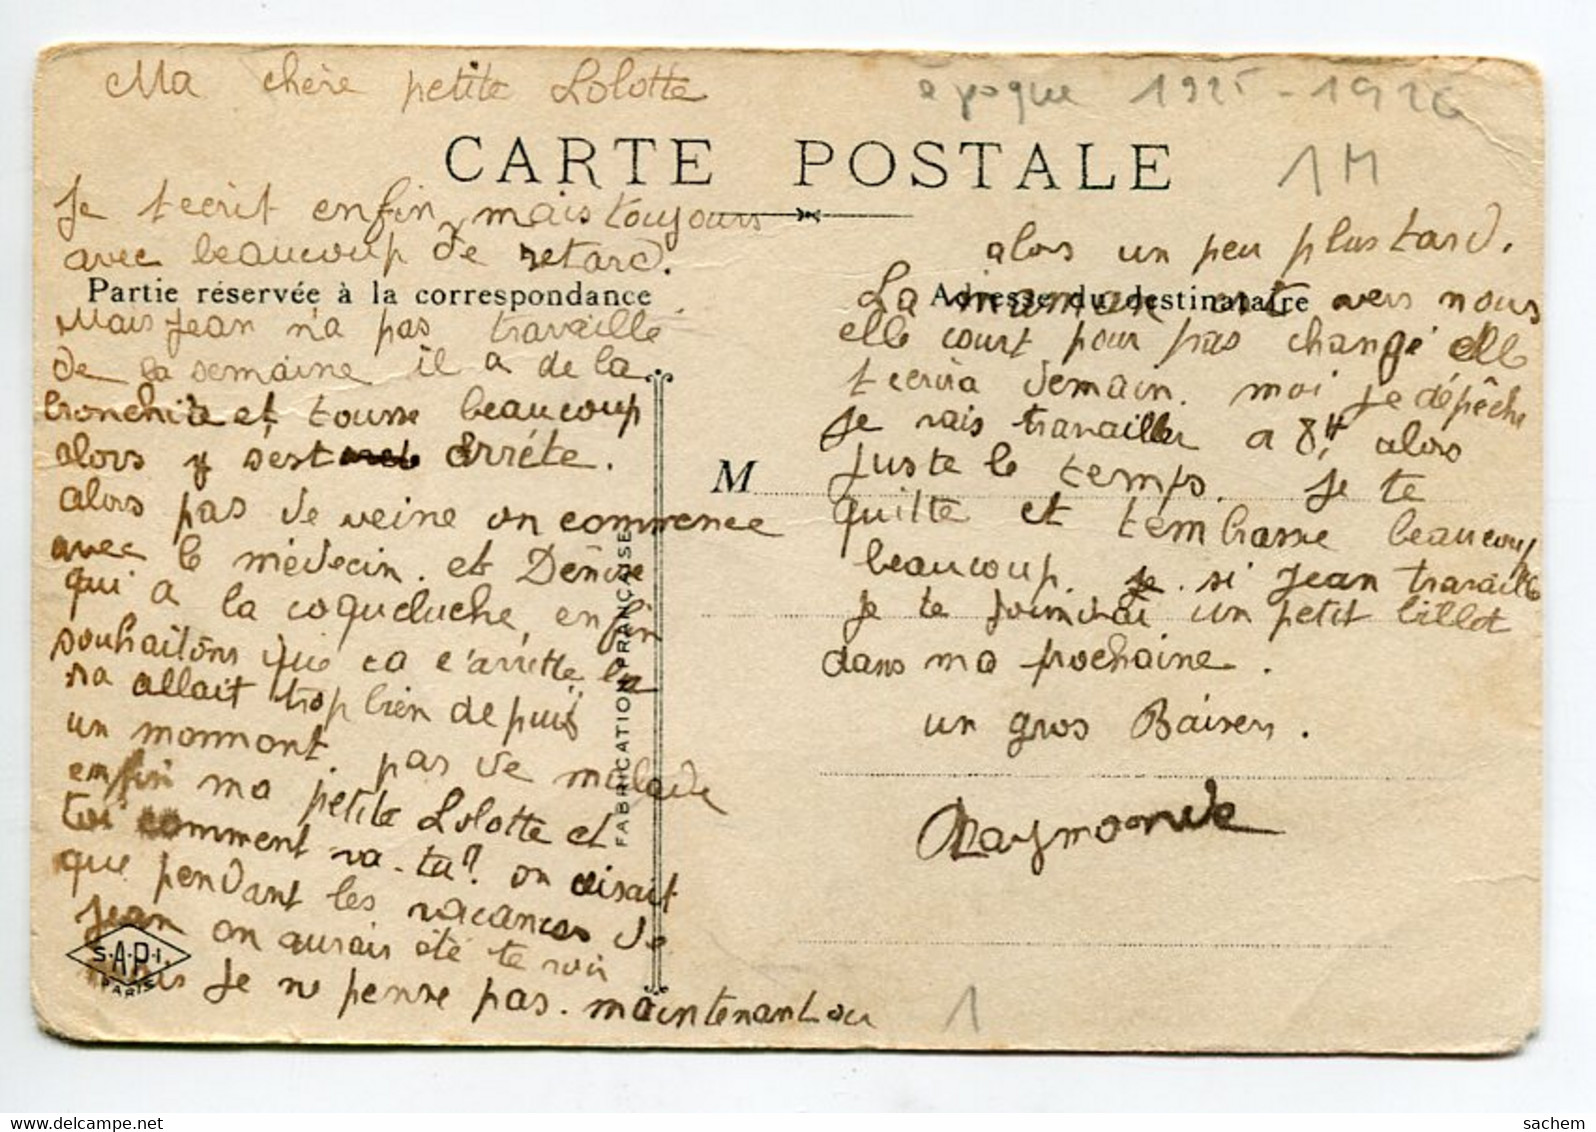 Ma chère petite Lolotte
époque 1925-1926
CARTE POSTALE
1M
Je tecrit enfin, mais toujours
avec beaucoup de retard.
Partie réservée à la correspondance
Mais Jean n'a pas travaillé
de la semaine il a de la
bronchite et tousse beaucoup
alors y s'est arréte.
alors pas de veine on commence
avec le médecin. et Denise
qui a la coqueluche, enfin
souhaitons que ca c'arrette la
sa allait trop bien depuis
un momont. pas de malade
enfin ma petite Lolotte et
toi comment va-tu? on disait
que pendant les vacances de
Jean on aurais été te voir
mais je ne pense pas. maintenant ou
S.A.P.I.
PARIS
FABRICATION FRANÇAISE
alors un peu plus tard.
Adresse du destinataire
La maman est vers nous
elle court pour pas changé elle
tecrira demain. moi je dépêche
je vais travailler a 8H alors
M
juste le temps. je te
quitte et tembrasse beaucoup
beaucoup. je. si Jean travaille
je te joindrai un petit billet
dans ma prochaine.
un gros Baisers.
Raymonde
1
www.delcampe.net
sachem